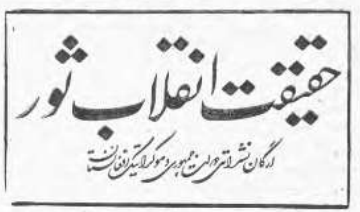 حقیقت انقلاب ثور
ارگان نشراتی دولت جمهوری دموکراتیک افغانستان